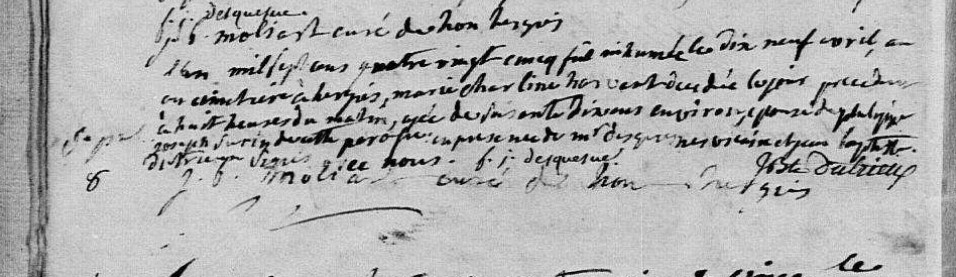 f. j. desquesne.
j. b. moliart curé de hon hergies
L'an mil sept cens quatre vingt cincq fut inhumée le dix neuf avril, au
au cimetière à hergies, marie charline harvent décédée le jour précédent
à huit heures du matin, agée de soixante dix ans environ, epouse de philippe
joseph de cette paroisse en presence de mr desquesnes vicaire et jean baptiste
dutrieux signés avec nous. f. j. desquesne.
8 j. b. moliart curé de hon hergies
jbte Dutrieux